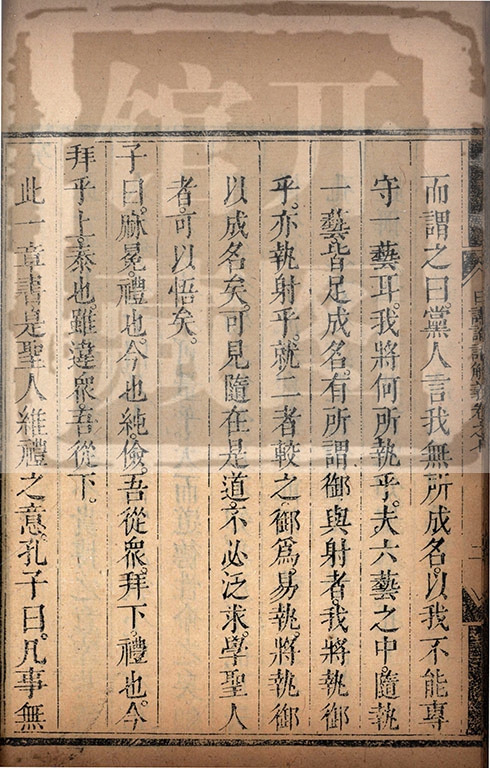 而謂之曰。黨人言我無所成名。以我不能專
守一藝耳。我將何所執乎。夫六藝之中。隨執
一藝。皆足成名。有所謂御與射者。我將執御
乎。亦執射乎。就二者較之。御為易執。將執御
以成名矣。可見隨在是道。不必泛求。學聖人
者。可以悟矣。
子曰。麻冕。禮也。今也純。儉。吾從衆。拜下。禮也。今
拜乎上。泰也。雖違衆。吾從下。
此一章書。是聖人維禮之意。孔子曰。凡事無